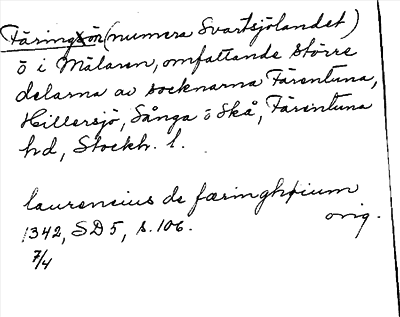 Färingsön (numera Svartsjölandet)
ö i Mälaren, omfattande större
delarna av socknarna Färentuna,
Hillersjö, Sånga o Skå, Färentuna
hd, Stockh. l.
laurencius de færinghøium
1342, SD 5, s. 106. orig.
7/4